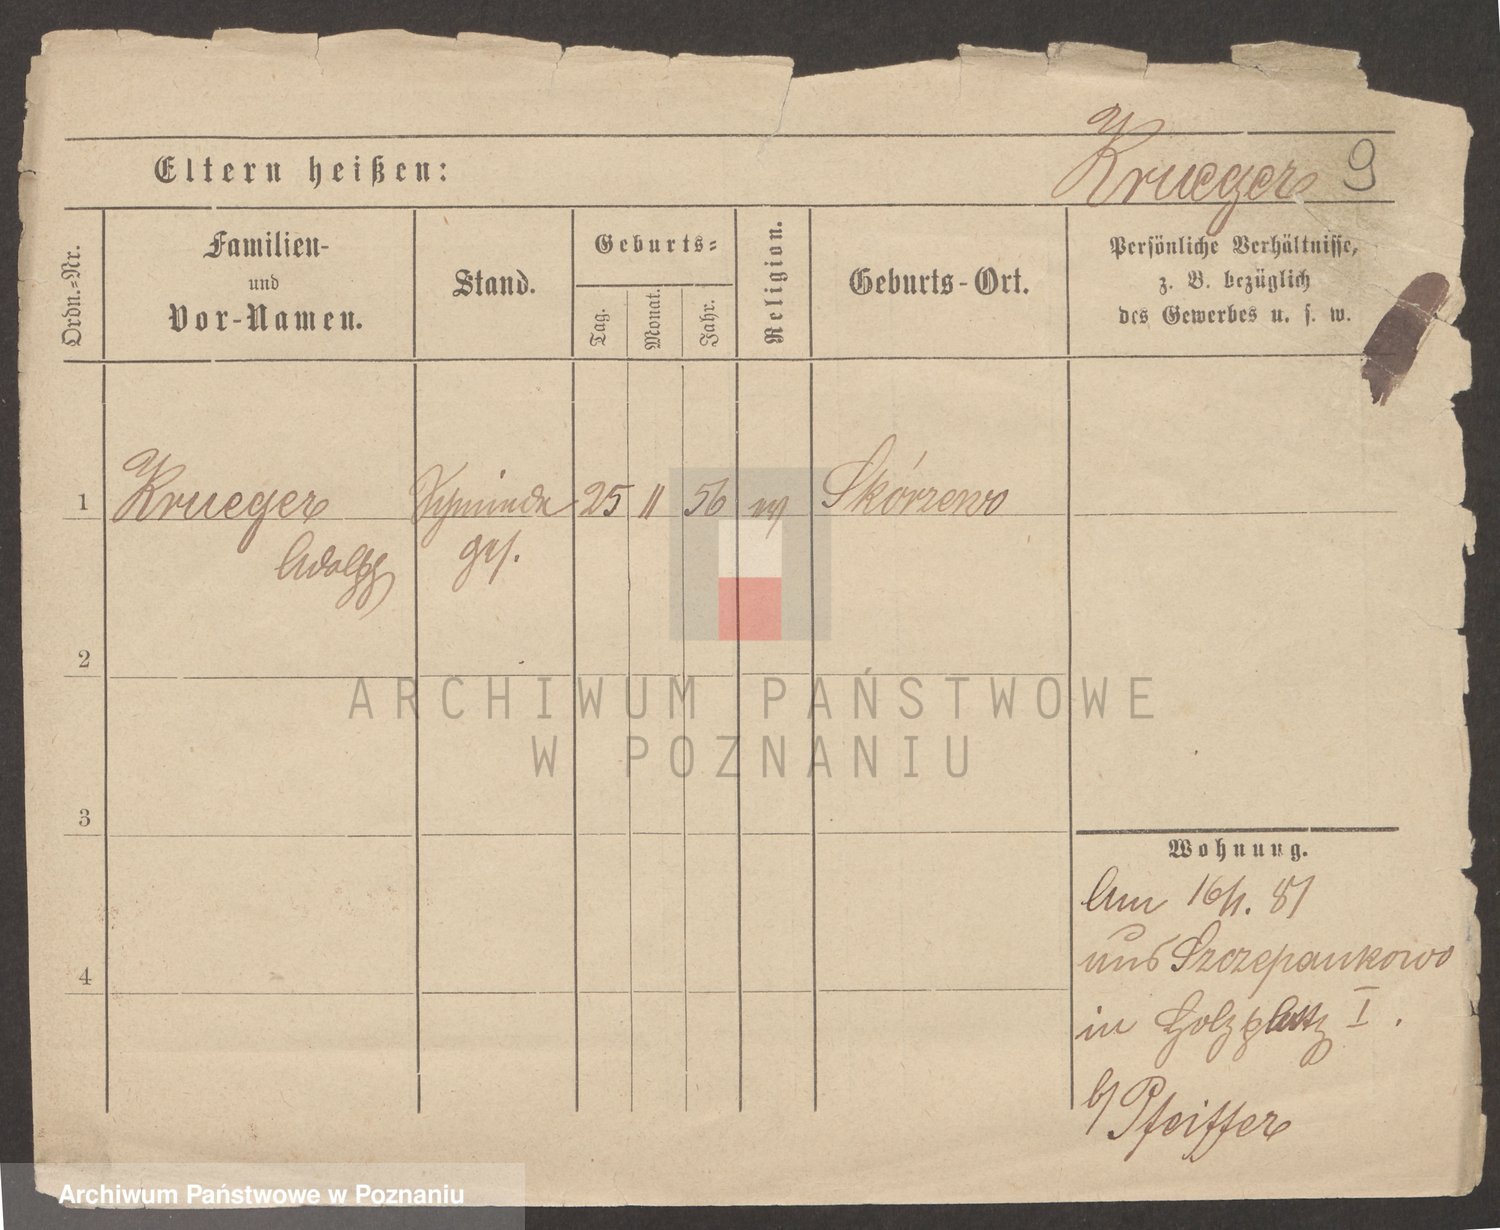 Krueger 9
Eltern heißen:
Ordn.-Nr.
Familien-
und
Vor-Namen.
Stand.
Geburts-
Tag.
Monat.
Jahr.
Religion.
Geburts-Ort.
Persönliche Verhältnisse,
z. B. bezüglich
des Gewerbes u. s. w.
1 Krueger 25 11 56 Skórzewo
Adolph ges.
2
3
4
Wohnung.
Am 16/1. 81
aus Szczepankowo
in Holzplatz I.
b/ Pfeiffer
ARCHIWUM PAŃSTWOWE
W POZNANIU
Archiwum Państwowe w Poznaniu